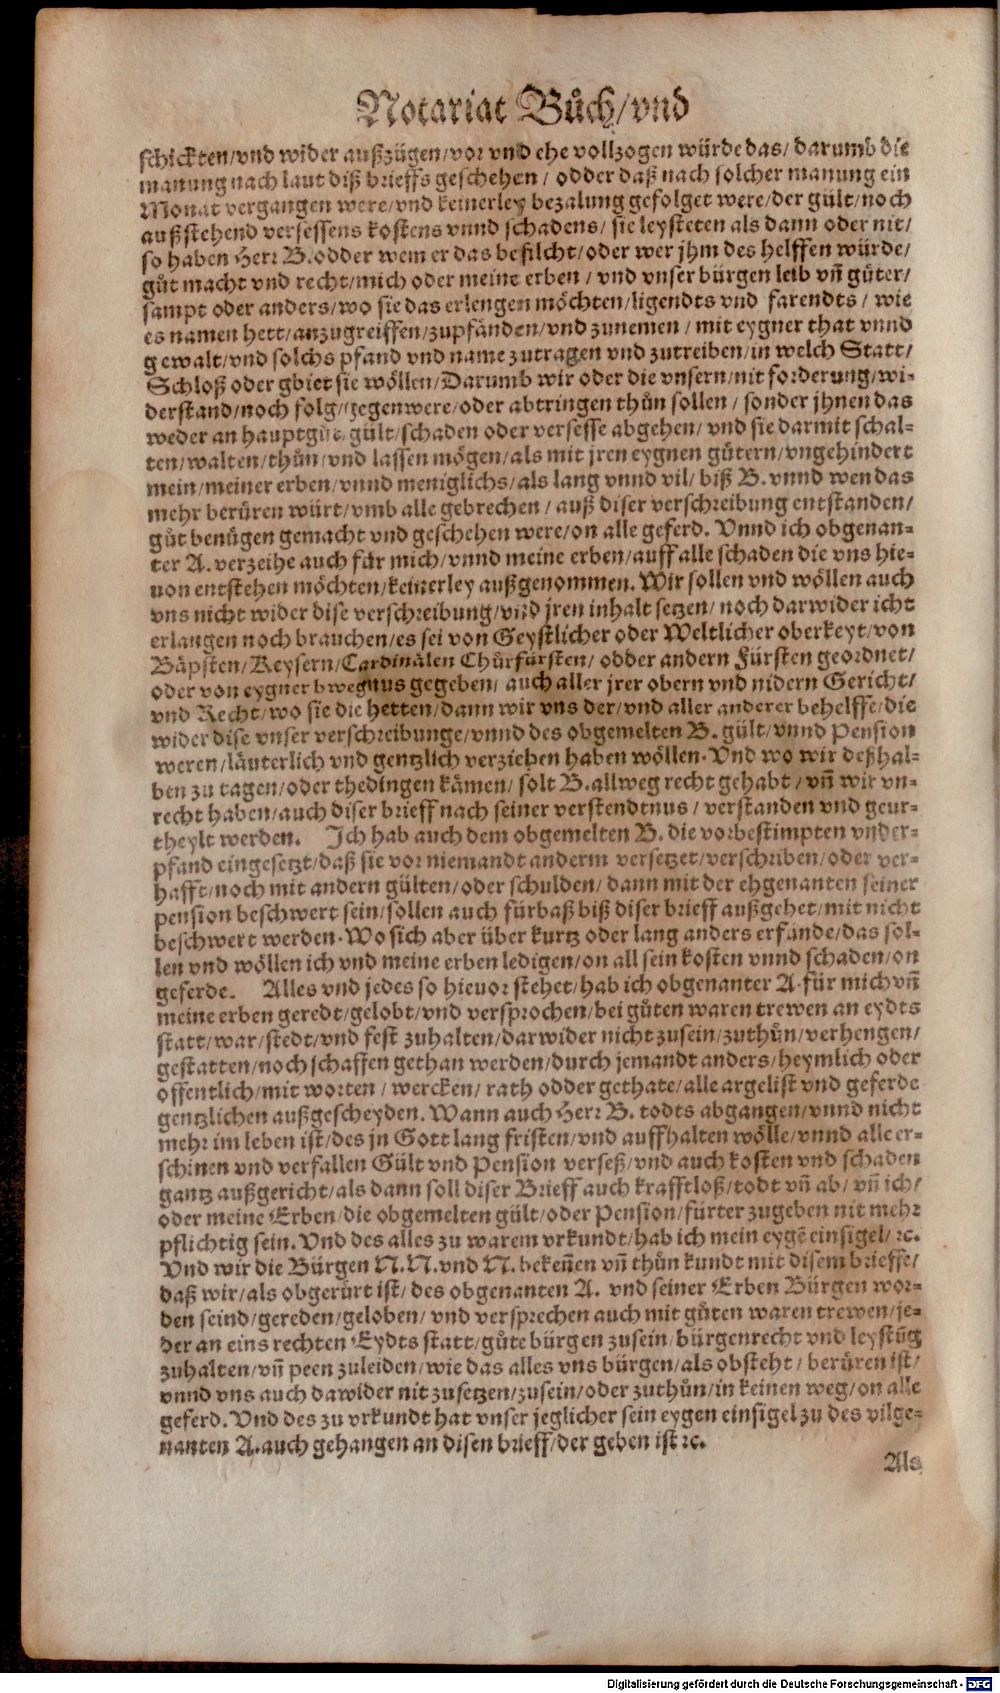 Notariat Bůch/vnd
schickten/vnd wider außzügen/vor vnd ehe vollzogen würde das/ darumb die
manung nach laut diß brieffs geschehen / odder daß nach solcher manung ein
Monat vergangen were/vnd keinerley bezalung gefolget were/der gült/noch
außstehend versessens kostens vnnd schadens/ sie leysteten als dann oder nit/
so haben Herr B.odder wem er das befilcht/oder wer jhm des helffen würde/
gůt macht vnd recht/mich oder meine erben / vnd vnser bürgen leib vñ güter/
sampt oder anders/wo sie das erlengen möchten/ligendts vnd farendts / wie
es namen hett/anzugreiffen/zupfänden/vnd zunemen / mit eygner that vnnd
gewalt/vnd solchs pfand vnd name zutragen vnd zutreiben/in welch Statt/
Schloß oder gbiet sie wöllen/Darumb wir oder die vnsern/nit forderung/wi-
derstand/noch folg/gegenwere/oder abtringen thůn sollen / sonder jhnen das
weder an hauptgůt gült/schaden oder versesse abgehen/ vnd sie darmit schal-
ten/walten/thůn/vnd lassen mögen/als mit jren eygnen gütern/vngehindert
mein/meiner erben/vnnd meniglichs/als lang vnnd vil/ biß B. vnnd wen das
mehr berüren würt/vmb alle gebrechen / auß diser verschreibung entstanden/
gůt benügen gemacht vnd geschehen were/on alle geferd. Vnnd ich obgenan-
ter A. verzeihe auch für mich/vnnd meine erben/auff alle schaden die vns hie-
uon entstehen möchten/keinerley außgenommen. Wir sollen vnd wöllen auch
vns nicht wider dise verschreibung/vnd jren inhalt setzen/ noch darwider icht
erlangen noch brauchen/es sei von Geystlicher oder Weltlicher oberkeyt/von
Bäpsten/Keysern/Cardinälen Chůrfürsten/ odder andern Fürsten geordnet/
oder von eygner bwegnus gegeben/ auch aller jrer obern vnd nidern Gericht/
vnd Recht/wo sie die hetten/dann wir vns der/vnd aller anderer behelffe/die
wider dise vnser verschreibunge/vnnd des obgemelten B. gült/vnnd Pension
weren/läuterlich vnd gentzlich verziehen haben wöllen. Vnd wo wir deßhal-
ben zu tagen/oder thedingen kämen/ solt B.allweg recht gehabt / vñ wir vn-
recht haben/auch diser brieff nach seiner verstendtnus / verstanden vnd geur-
theylt werden. Ich hab auch dem obgemelten B. die vorbestimpten vnder-
pfand eingesetzt/daß sie vor niemandt anderm versetzet/verschriben/oder ver-
hafft/noch mit andern gülten/oder schulden/ dann mit der ehgenanten seiner
pension beschwert sein/sollen auch fürbaß biß diser brieff außgehet/mit nicht
beschwert werden. Wo sich aber über kurtz oder lang anders erfünde/das sol-
len vnd wöllen ich vnd meine erben ledigen/on all sein kosten vnnd schaden/on
geferde. Alles vnd jedes so hieuor stehet/hab ich obgenanter A. für mich vñ
meine erben geredt/gelobt/vnd versprochen/bei gůten waren trewen an eydts
statt/war/stedt/vnd fest zuhalten/darwider nicht zusein/zuthůn/verhengen/
gestatten/noch schaffen gethan werden/durch jemandt anders/heymlich oder
offentlich/mit worten / wercken/ rath odder gethate/alle argelist vnd geferde
gentzlichen außgescheyden. Wann auch Herr B. todts abgangen/vnnd nicht
mehr im leben ist/des jn Gott lang fristen/vnd auffhalten wölle/vnnd alle er-
schinen vnd verfallen Gült vnd Pension verseß/vnd auch kosten vnd schaden
gantz außgericht/als dann soll diser Brieff auch krafftloß/todt vñ ab/ vñ ich/
oder meine Erben/die obgemelten gült/oder Pension/fürter zugeben nit mehr
pflichtig sein. Vnd des alles zu warem vrkundt/hab ich mein eygē einsigel/ ꝛc.
Vnd wir die Bürgen N.N.vnd N. bekeñen vñ thůn kundt mit disem brieffe/
daß wir/als obgerürt ist/ des obgenanten A. vnd seiner Erben Bürgen wor-
den seind/gereden/geloben/ vnd versprechen auch mit gůten waren trewen/je-
der an eins rechten Eydts statt/gůte bürgen zusein/bürgenrecht vnd leystūg
zuhalten/vñ peen zuleiden/wie das alles vns bürgen/als obsteht/ berüren ist/
vnnd vns auch dawider nit zusetzen/zusein/oder zuthůn/in keinen weg/on alle
geferd. Vnd des zu vrkundt hat vnser jeglicher sein eygen einsigel zu des vilge-
nanten A.auch gehangen an disen brieff/der geben ist ꝛc.
Als
Digitalisierung gefördert durch die Deutsche Forschungsgemeinschaft - DFG